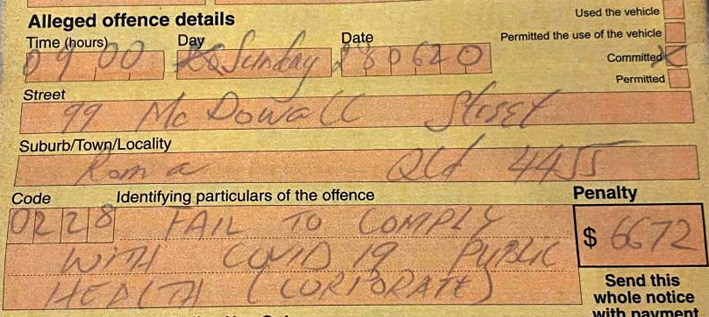 Alleged offence details
Used the vehicle
Permitted the use of the vehicle
Committed X
Permitted
Time (hours) Day Date
0900 Sunday 280620
Street
99 McDowall Street
Suburb/Town/Locality
Roma Qld 4455
Code Identifying particulars of the offence Penalty
0228 FAIL TO COMPLY
WITH COVID 19 PUBLIC
HEALTH (CORPORATE)
$ 6672
Send this
whole notice
with payment